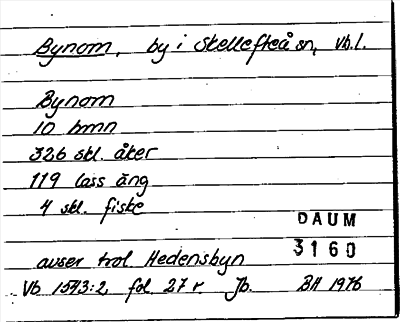 Bynom, by i Skellefteå sn, Vb.l.
Bynom
10 bmn
326 skl. åker
119 lass äng
4 skl. fiske
DAUM
3160
avser trol. Hedensbyn
Vb 1543:2, fol. 27 r. Jb. BH 1976